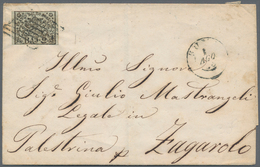 Illmo Signore
Sigr Giulio Mastrangeli
Legale in
Palestrina p Zagarolo